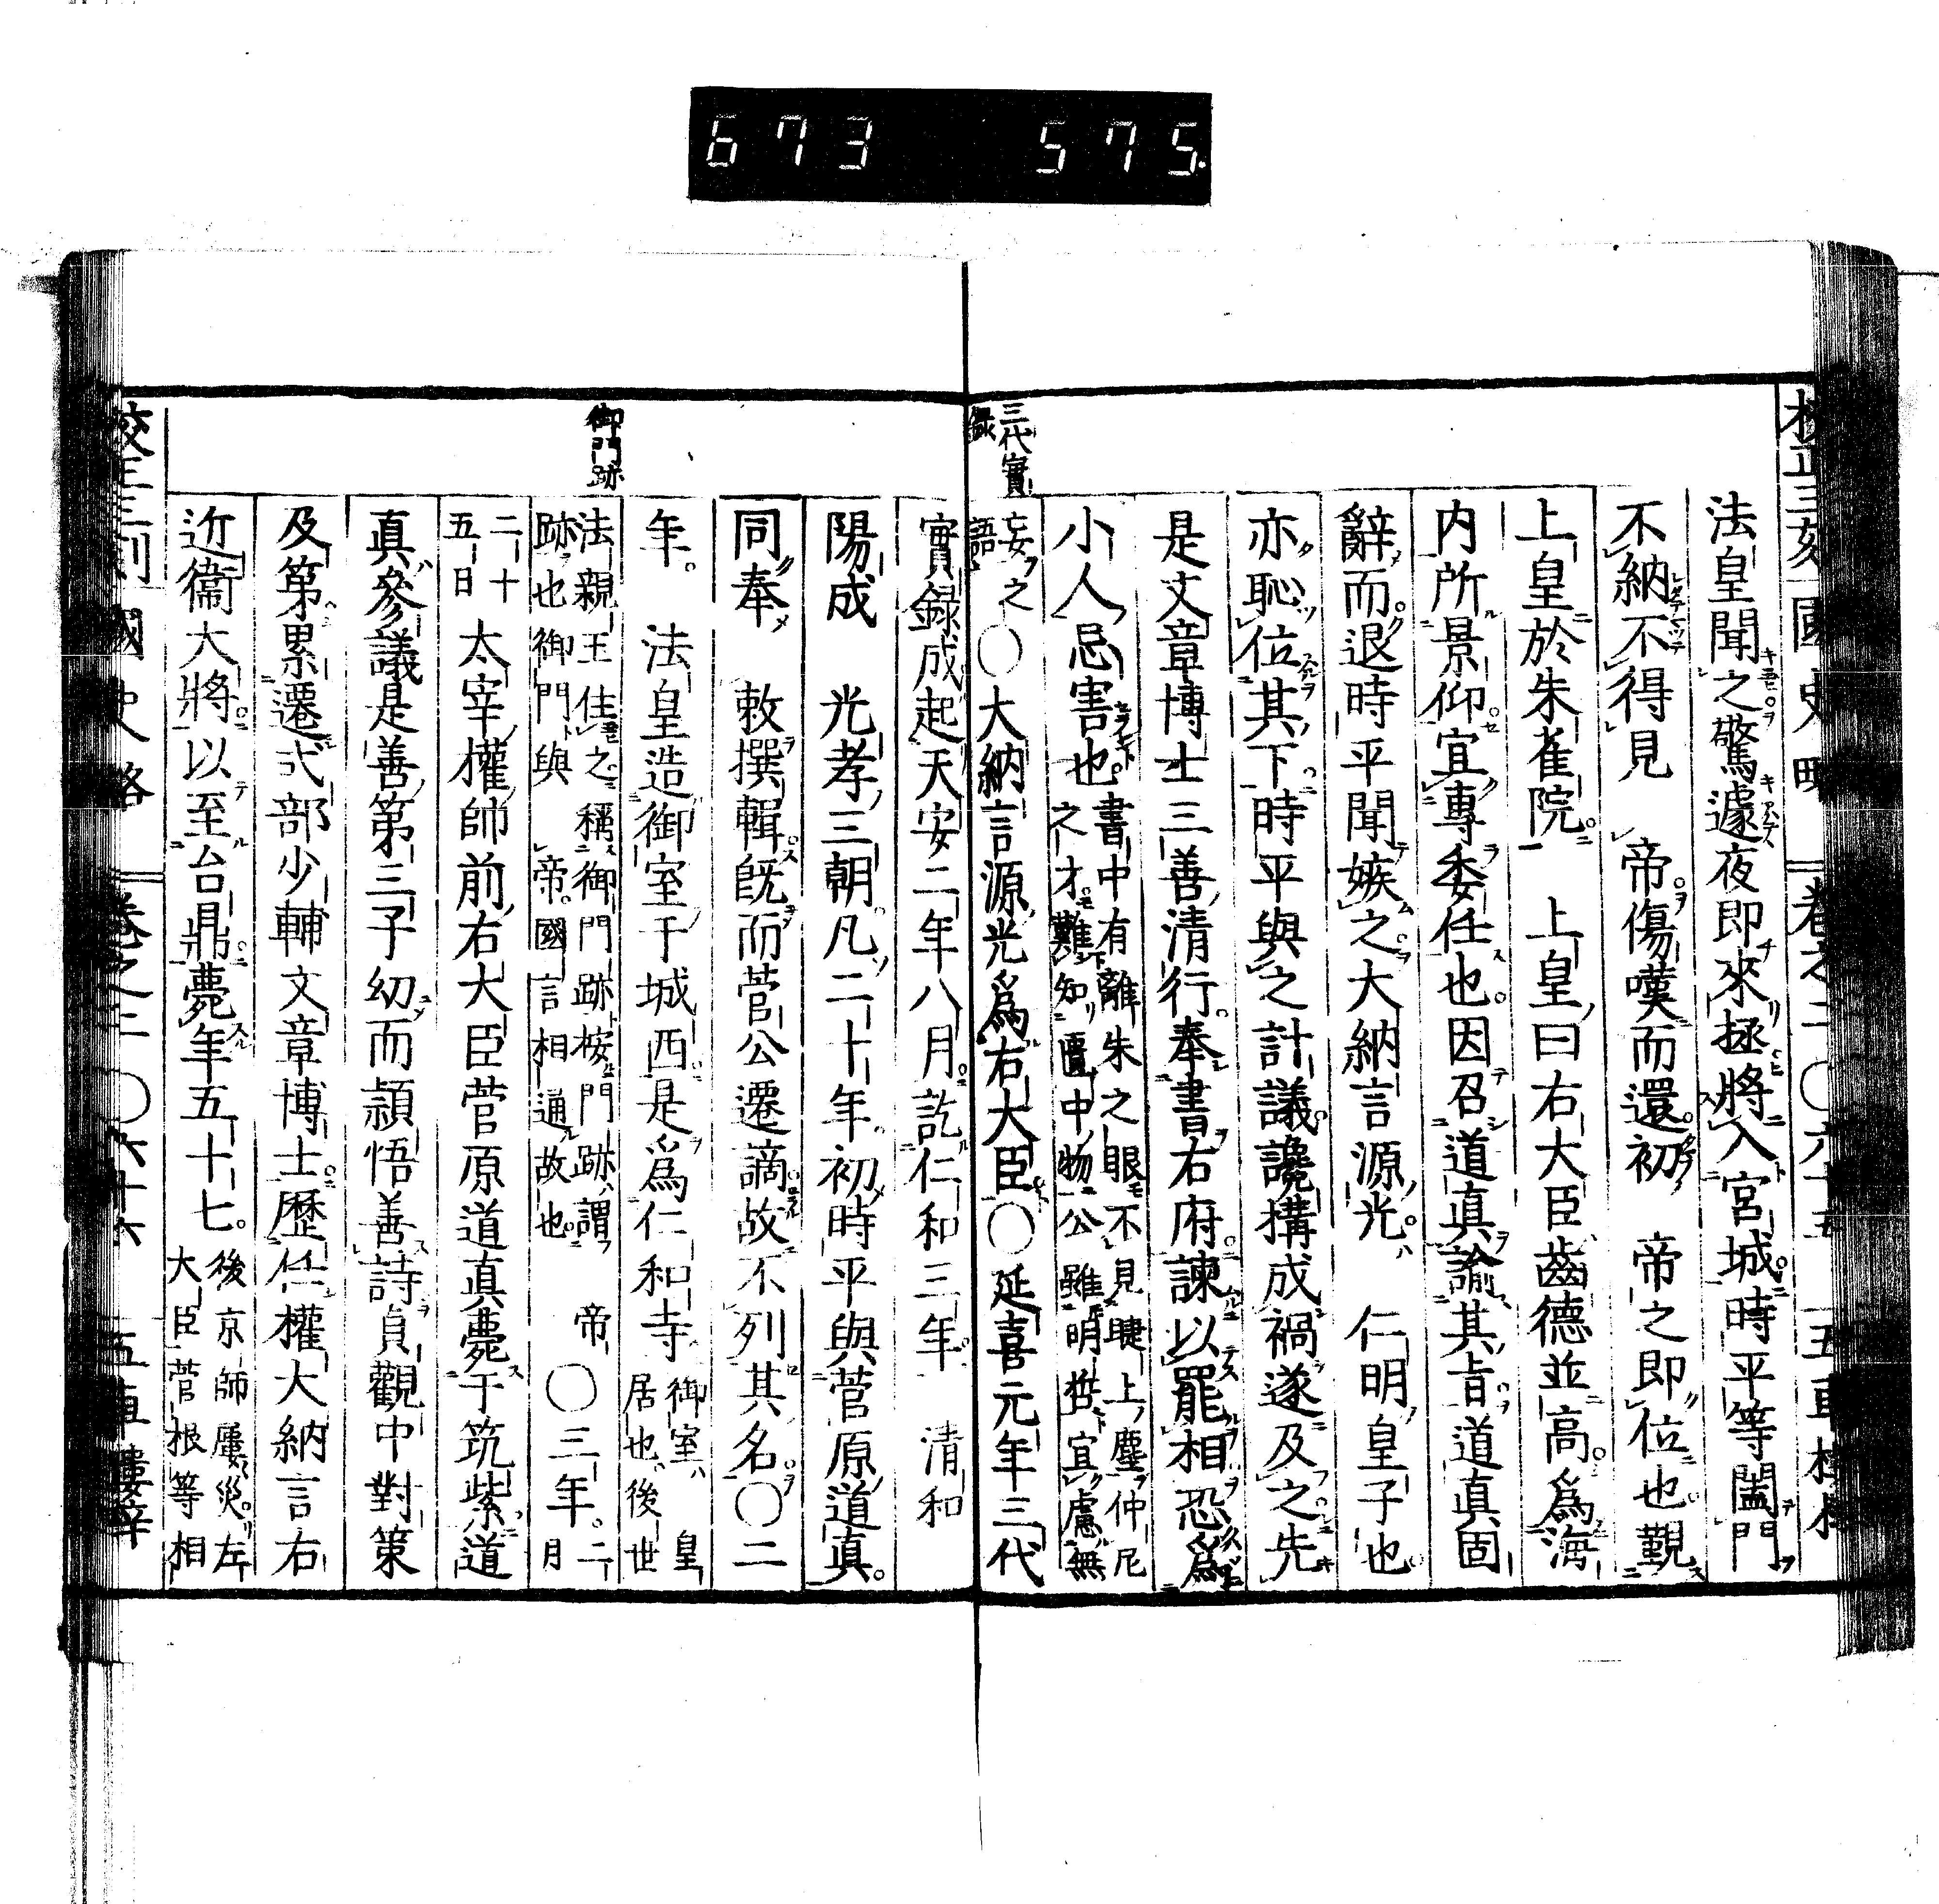 673 575
法皇聞之驚遽夜即來拯將入宮城時平等闔門
不納不得見　帝傷嘆而還初　帝之即位也覲
上皇於朱雀院　上皇曰右大臣齒德並高爲海
内所景仰宜專委任也因召道真諭其旨道真固
辭而退時平聞嫉之大納言源光　仁明皇子也
亦恥位其下時平與之計議讒搆成禍遂及之先
是文章博士三善清行奉書右府諫以罷相恐爲
小人忌害也
書中有離朱之眼不見睫上塵仲尼
之才難知匱中物公雖明哲宜慮無
三代實
録
妄之
語
○大納言源光爲右大臣○延喜元年三代
實録成起天安二年八月訖仁和三年　清和
陽成　光孝三朝凡二十年初時平與菅原道真
同奉　敕撰輯既而菅公遷謫故不列其名○二
年法皇造御室于城西是爲仁和寺
御室皇
居也後世
御門跡
法親王住之稱御門跡按門跡謂　帝
跡也御門與　帝國言相通故也
○三年
二月
二十
五日
太宰權帥前右大臣菅原道真薨于筑紫道
真參議是善第三子幼而頴悟善詩貞觀中對策
及第累遷式部少輔文章博士歴任權大納言右
近衞大將以至台鼎薨年五十七
後京師屢災左
大臣菅根等相
國史略　卷之二　○六十六